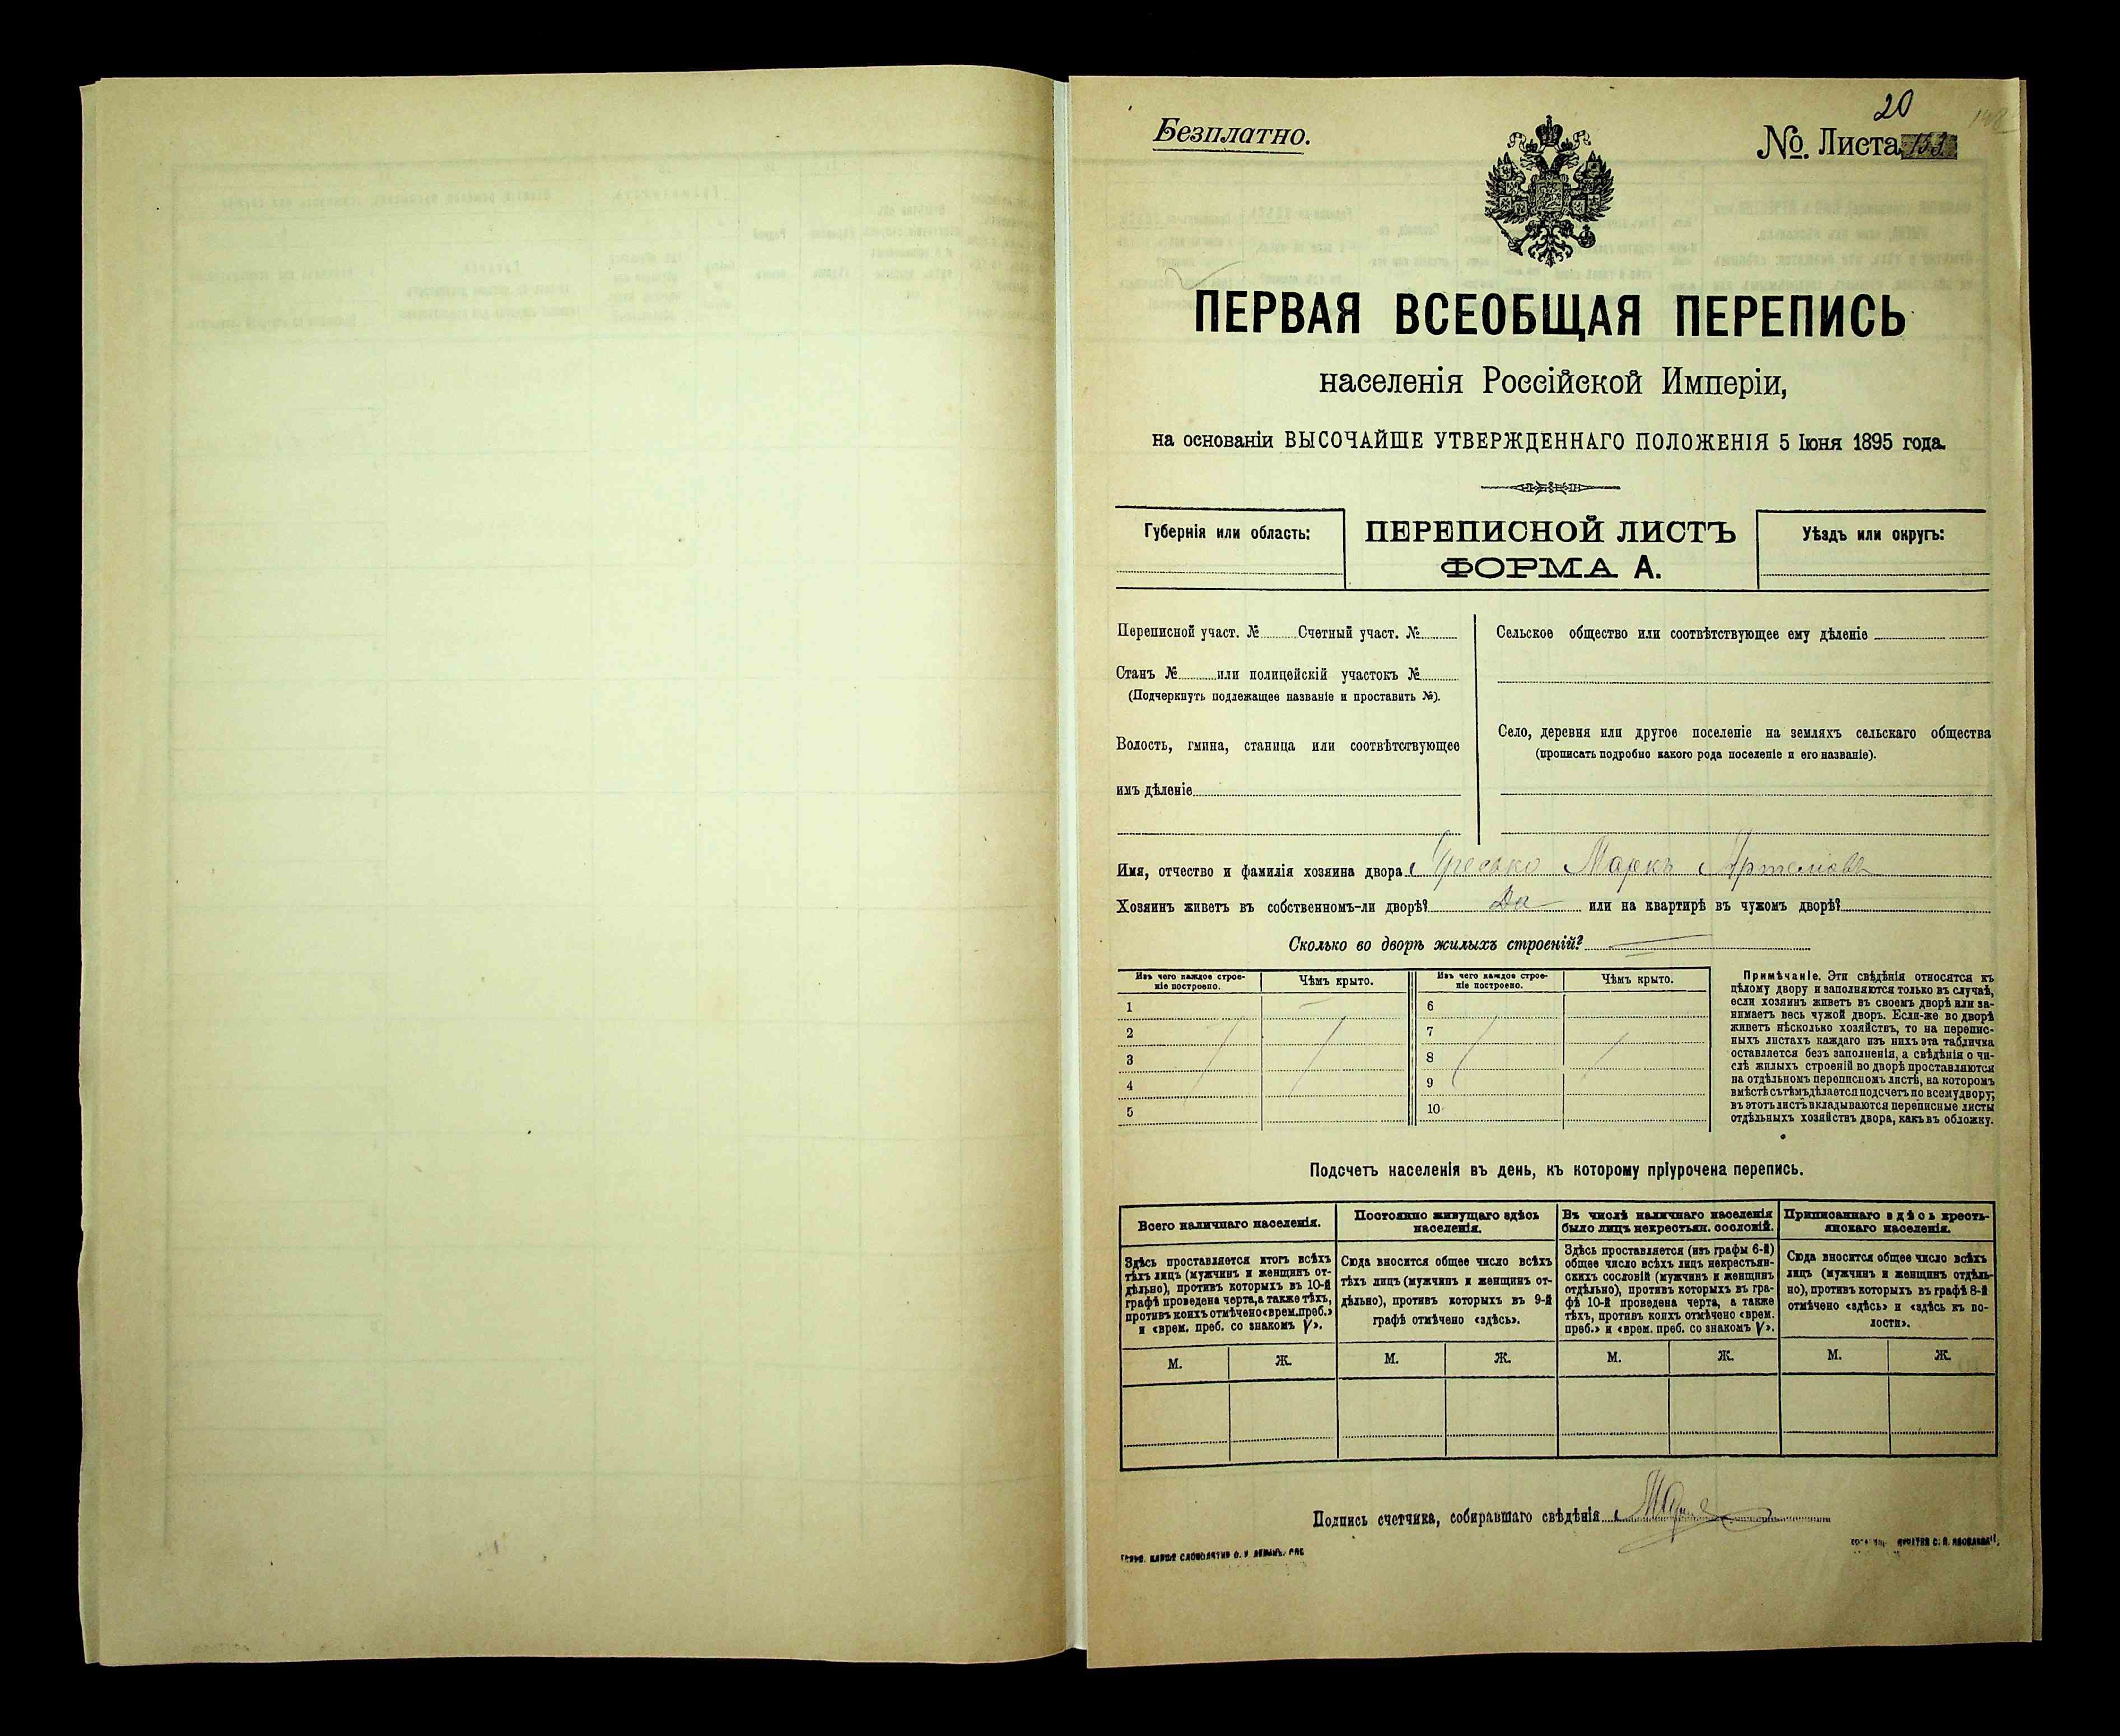 20
Безплатно.
№. Листа 153
ПЕРВАЯ ВСЕОБЩАЯ ПЕРЕПИСЬ
населенія Россійской Имперіи,
на основаніи ВЫСОЧАЙШЕ УТВЕРЖДЕННАГО ПОЛОЖЕНІЯ 5 Іюня 1895 года.
Губернія или область:
ПЕРЕПИСНОЙ ЛИСТЪ
ФОРМА А.
Уѣздъ или округъ:
Переписной участ. № Счетный участ. №
Станъ № или полицейскій участокъ №
(Подчеркнуть подлежащее названіе и проставить №).
Волость, гмина, станица или соотвѣтствующее
имъ дѣленіе
Сельское общество или соотвѣтствующее ему дѣленіе
Село, деревня или другое поселеніе на земляхъ сельскаго общества
(прописать подробно какого рода поселеніе и его названіе).
Имя, отчество и фамилія хозяина двора Маркъ Артемовъ
Хозяинъ живетъ въ собственномъ-ли дворѣ? Да или на квартирѣ въ чужомъ дворѣ?
Сколько во дворѣ жилыхъ строеній?
Изъ чего каждое строе-
ніе построено.
Чѣмъ крыто.
1
2
3
4
5
Изъ чего каждое строе-
ніе построено.
Чѣмъ крыто.
6
7
8
9
10
Примѣчаніе. Эти свѣдѣнія относятся къ
цѣлому двору и заполняются только въ случаѣ,
если хозяинъ живетъ въ своемъ дворѣ или за-
нимаетъ весь чужой дворъ. Если-же во дворѣ
живетъ нѣсколько хозяйствъ, то на перепис-
ныхъ листахъ каждаго изъ нихъ эта табличка
оставляется безъ заполненія, а свѣдѣнія о чи-
слѣ жилыхъ строеній во дворѣ проставляются
на отдѣльномъ переписномъ листѣ, на которомъ
вмѣстѣ съ тѣмъ дѣлается подсчетъ по всему двору;
въ этотъ листъ вкладываются переписные листы
отдѣльныхъ хозяйствъ двора, какъ въ обложку.
Подсчетъ населенія въ день, къ которому пріурочена перепись.
Всего наличнаго населенія.
Здѣсь проставляется итогъ всѣхъ
тѣхъ лицъ (мужчинъ и женщинъ от-
дѣльно), противъ которыхъ въ 10-й
графѣ проведена черта, а также тѣхъ,
противъ коихъ отмѣчено «врем. преб.»
и «врем. преб. со знакомъ V».
М. Ж.
Постоянно живущаго здѣсь
населенія.
Сюда вносится общее число всѣхъ
тѣхъ лицъ (мужчинъ и женщинъ от-
дѣльно), противъ которыхъ въ 9-й
графѣ отмѣчено «здѣсь».
М. Ж.
Въ числѣ наличнаго населенія
было лицъ некрестьян. сословій.
Здѣсь проставляется (изъ графы 6-й)
общее число всѣхъ лицъ некрестьян-
скихъ сословій (мужчинъ и женщинъ
отдѣльно), противъ которыхъ въ гра-
фѣ 10-й проведена черта, а также
тѣхъ, противъ коихъ отмѣчено «врем.
преб.» и «врем. преб. со знакомъ V».
М. Ж.
Приписаннаго здѣсь кресть-
янскаго населенія.
Сюда вносится общее число всѣхъ
лицъ (мужчинъ и женщинъ отдѣль-
но), противъ которыхъ въ графѣ 8-й
отмѣчено «здѣсь» и «здѣсь къ во-
лости».
М. Ж.
Подпись счетчика, собиравшаго свѣдѣнія